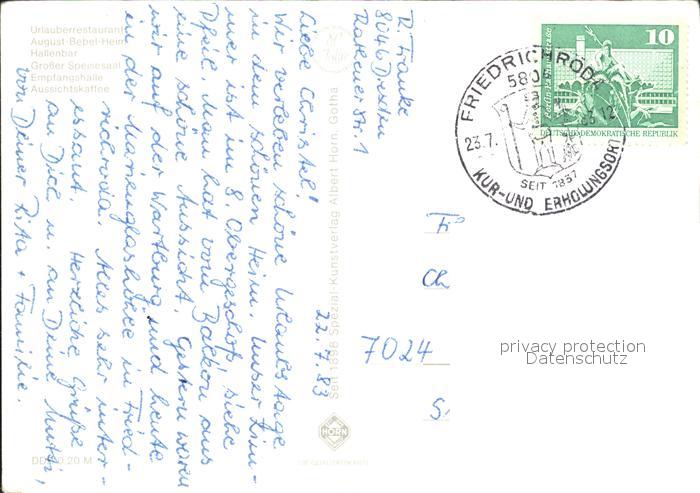 Urlauberrestaurant
August-Bebel-Heim
Hallenbar
Großer Speisesaal
Empfangshalle
Aussichtskaffee
R. Franke
8046 Dresden
Str. 1
22.7.83
Liebe Christel!
Wir verleben schöne Urlaubstage
in dem schönen Heim. Unser Zim-
mer ist im 8. Obergeschoß, siehe
Pfeil, man hat vom Balkon aus
eine schöne Aussicht. Gestern waren
wir auf der Wartburg und heute
in der Marienglashöhle in Fried-
richroda. Alles sehr inter-
essant. Herzliche Grüße
an Dich u. an Deine Mutti,
von Deiner Rita + Familie.
Seit 1898 Spezial-Kunstverlag Albert Horn, Gotha
HORN
DDR 0,20 M
10
DEUTSCHE DEMOKRATISCHE REPUBLIK
FRIEDRICHRODA
580
23.7.
83.12
SEIT 1837
KUR-UND ERHOLUNGSORT
Fr
Ch
7024
S
privacy protection
Datenschutz